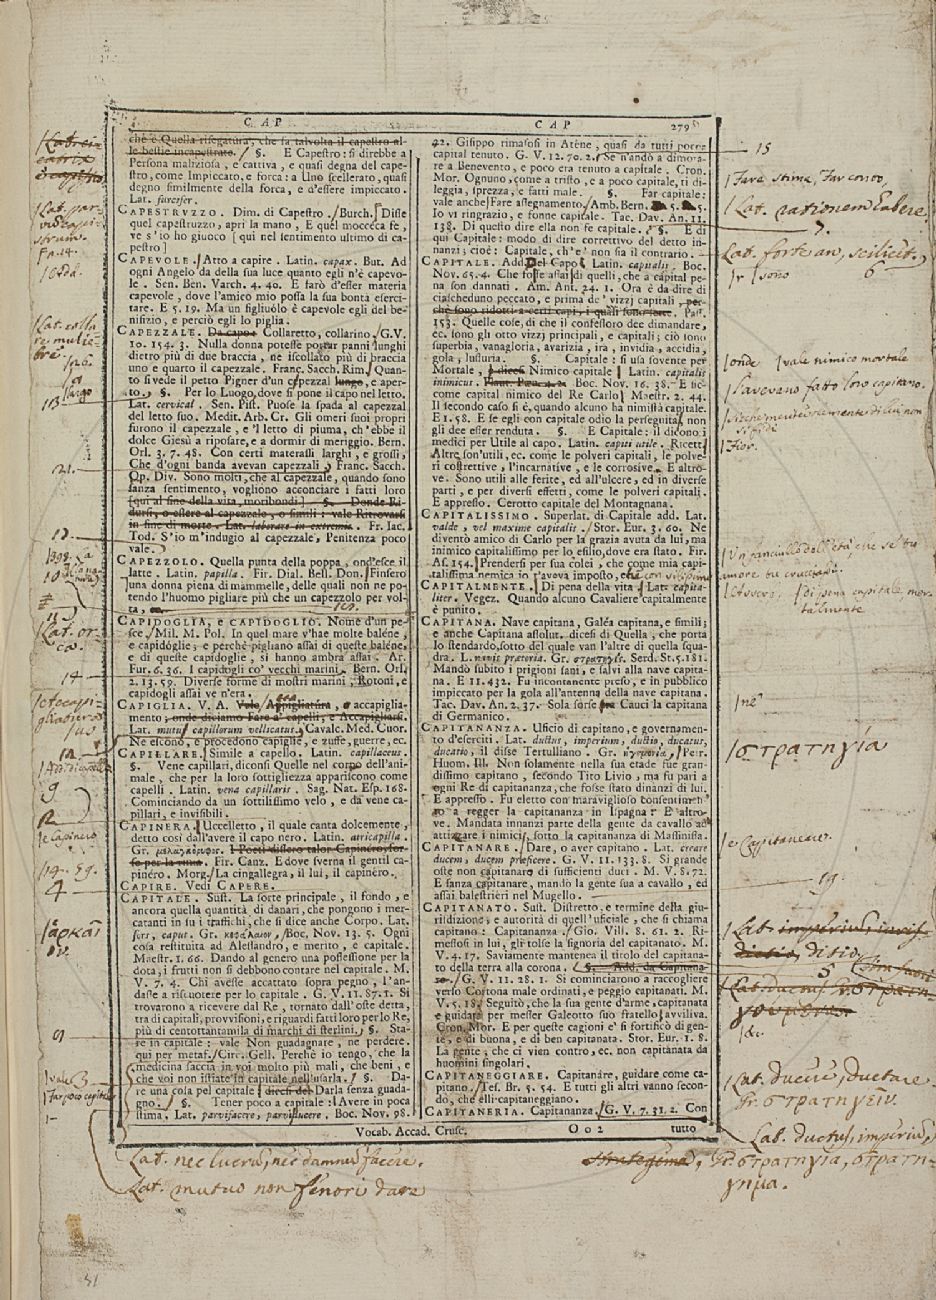 CAP
CAP
279
che è Quella risegatura, che fa talvolta il capestro al-
le bestie incapestrate. / §. E Capestro: si direbbe a
Persona maliziosa, e cattiva, e quasi degna del cape-
stro, come Impiccato, e forca: a Uno scellerato, quasi
degno similmente della forca, e d'essere impiccato.
Lat. furcifer.
CAPESTRUZZO. Dim. di Capestro. Burch. Disse
quel capestruzzo, apri la mano, E quel mocceca fé,
ve s'io ho giuoco [qui nel sentimento ultimo di ca-
pestro]
CAPEVOLE. Atto a capire. Latin. capax. But. Ad
ogni Angelo da della sua luce quanto egli n'è capevo-
le. Sen. Ben. Varch. 4. 40. E farò d'esser materia
capevole, dove l'amico mio possa la sua bontà eserci-
tare. E 5. 19. Ma un figliuolo è capevole egli del be-
nifizio, e perciò egli lo piglia.
CAPEZZALE. Da capo. Collaretto, collarino. G.V.
10. 154. 3. Nulla donna potesse portar panni lunghi
dietro più di due braccia, ne iscollato più di braccia
uno e quarto il capezzale. Franc. Sacch. Rim. Quan-
to si vede il petto Pigner d'un capezzal lungo, e aper-
to. §. Per lo Luogo, dove si pone il capo nel letto.
Lat. cervical. Sen. Pist. Puose la spada al capezzal
del letto suo. Medit. Arb. Cr. Gli omeri suoi propri
furono il capezzale, e 'l letto di piuma, ch'ebbe il
dolce Giesù a riposare, e a dormir di meriggio. Bern.
Orl. 3. 7. 48. Con certi materassi larghi, e grossi,
Che d'ogni banda avevan capezzali, Franc. Sacch.
Op. Div. Sono molti, che al capezzale, quando sono
sanza sentimento, vogliono acconciare i fatti loro
[qui al fine della vita, moribondi] §. Donde Ri-
dursi, o essere al capezzale, o simili: vale Ritrovarsi
in fine di morte. Lat. laborare in extremis. Fr. Iac.
Tod. S'io m'indugio al capezzale, Penitenza poco
vale.
CAPEZZOLO. Quella punta della poppa, ond'esce il
latte. Latin. papilla. Fir. Dial. Bell. Don. Finsero
una donna piena di mammelle, delle quali non ne po-
tendo l'huomo pigliare più che un capezzolo per vol-
ta,
CAPIDOGLIA, e CAPIDOGLIO. Nome d'un pe-
sce. Mil. M. Pol. In quel mare v'hae molte baléne,
e capidóglie; e perchè pigliano assai di queste baléne,
e di queste capidoglie, si hanno ambra assai. Ar.
Fur. 6. 36. I capidogli co' vecchi marini. Bern. Orl.
2. 13. 59. Diverse forme di mostri marini, Rotoni, e
capidogli assai ve n'era.
CAPIGLIA. V. A. Vale Appigliatura, o accapiglia-
mento; onde diciamo Fare a' capelli, e Accapigliarsi.
Lat. mutua capillorum vellicatus. Cavalc. Med. Cuor.
Ne escono, e procedono capiglie, e zuffe, guerre, ec.
CAPILLARE. Simile a capello. Latin. capillaceus.
§. Vene capillari, diconsi Quelle nel corpo dell'ani-
male, che per la loro sottigliezza appariscono come
capelli. Latin. vena capillaris. Sag. Nat. Esp. 168.
Cominciando da un sottilissimo velo, e da vene ca-
pillari, e invisibili.
CAPINERA. Uccelletto, il quale canta dolcemente,
detto così dall'avere il capo nero. Latin. atricapilla.
Gr. μελαγκόρυφος. I Poeti dissero talor Capinéro, for-
se per la rima. Fir. Canz. E dove sverna il gentil ca-
pinéro. Morg. La cingallegra, il lui, il capinéro.
CAPIRE. Vedi CAPERE.
CAPITALE. Sust. La sorte principale, il fondo, e
ancora quella quantità di danari, che pongono i mer-
catanti in su i traffichi, che si dice anche Corpo. Lat.
sors, caput. Gr. κεφάλαιον. Boc. Nov. 13. 5. Ogni
cosa restituita ad Alessandro, e merito, e capitale.
Maestr. 1. 66. Dando al genero una possessione per la
dota, i frutti non si debbono contare nel capitale. M.
V. 7. 4. Chi avesse accattato sopra pegno, l'an-
dasse a riscuotere per lo capitale. G. V. 11. 87. 1. Si
trovarono a ricevere dal Re, tornato dall'oste detta,
tra di capitali, provvisioni, e riguardi fatti loro per lo Re,
più di centottantamila di marchi di sterlini. §. Sta-
re in capitale: vale Non guadagnare, ne perdere.
qui per metaf. Circ. Gell. Perchè io tengo, che la
medicina faccia in voi molto più mali, che beni, e
che voi non istiate in capitale nell'usarla. §. Da-
re una cosa pel capitale: diciesi del Darla senza guada-
gno. §. Tener poco a capitale: Avere in poca
stima. Lat. parvifacere, parvipendere. Boc. Nov. 98.
42. Gisippo rimasosi in Atène, quasi da tutti poco a
capital tenuto. G. V. 12. 70. 2. Se n'andò a dimora-
re a Benevento, e poco era tenuto a capitale. Cron.
Mor. Ognuno, come a tristo, e a poco capitale, ti di-
leggia, sprezza, e fatti male. §. Far capitale:
vale anche Fare assegnamento. Amb. Bern. 5. 5.
Io vi ringrazio, e fonne capitale. Tac. Dav. An. 11.
138. Di questo dire ella non fe capitale. §. E di
qui Capitale: modo di dire correttivo del detto in-
nanzi; cioè: Capitale, ch'e' non sia il contrario.
CAPITALE. Add. Del Capo. Latin. capitalis. Boc.
Nov. 65. 4. Che fosse assai di quelli, che a capital pe-
na son dannati. Am. Ant. 24. 1. Ora è da dire di
ciascheduno peccato, e prima de' vizzj capitali, per-
chè sono ridotti a certi capi, i quali sono sette. Pass.
153. Quelle cose, di che il confessoro dee dimandare,
ec. sono gli otto vizzj principali, e capitali; ciò sono
superbia, vanagloria, avarizia, ira, invidia, accidia,
gola, lussuria. §. Capitale: si usa sovente per
Mortale, e dicesi Nimico capitale. Latin. capitalis
inimicus. Boc. Nov. 16. 38. E sic-
come capital nimico del Re Carlo. Maestr. 2. 44.
Il secondo caso si è, quando alcuno ha nimistà capitale.
E 1. 58. E se egli con capitale odio la perseguita, non
gli dee esser renduta. §. E Capitale: il dicono i
medici per Utile al capo. Latin. capiti utile. Ricett.
Altre son'utili, ec. come le polveri capitali, le polve-
ri costrettive, l'incarnative, e le corrosive. E altro-
ve. Sono utili alle ferite, ed all'ulcere, ed in diverse
parti, e per diversi effetti, come le polveri capitali.
E appresso. Cerotto capitale del Montagnana.
CAPITALISSIMO. Superlat. di Capitale add. Lat.
valde, vel maxime capitalis. Stor. Eur. 3. 60. Ne
diventò amico di Carlo per la grazia avuta da lui, ma
inimico capitalissimo per lo esilio, dove era stato. Fir.
As. 154. Prendersi per sua colei, che come mia capi-
talissima nemica io t'aveva imposto,
CAPITALMENTE. Di pena della vita. Lat. capita-
liter. Vegez. Quando alcuno Cavaliere capitalmente
è punito.
CAPITANA. Nave capitana, Galéa capitana, e simili;
e anche Capitana assolut. dicesi di Quella, che porta
lo stendardo, sotto del quale van l'altre di quella squa-
dra. L. navis prætoria. Gr. στρατηγίς. Serd. St. 5. 181.
Mandò subito i prigioni sani, e salvi alla nave capita-
na. E 11. 432. Fu incontanente preso, e in pubblico
impiccato per la gola all'antenna della nave capitana.
Tac. Dav. An. 2. 37. Sola sorse fra Cauci la capitana
di Germanico.
CAPITANANZA. Uficio di capitano, e governamen-
to d'eserciti. Lat. ductus, imperium, ductio, ducatus,
ducatio, il disse Tertulliano. Gr. ἡγεμονία. Petr.
Huom. Ill. Non solamente nella sua etade fue gran-
dissimo capitano, secondo Tito Livio, ma fu pari a
ogni Re di capitananza, che fosse stato dinanzi di lui.
E appresso. Fu eletto con maraviglioso consentimen-
to a regger la capitananza in Ispagna. E altro-
ve. Mandata innanzi parte della gente da cavallo ad
attizzare i nimici, sotto la capitananza di Massinissa.
CAPITANARE. Dare, o aver capitano. Lat. creare
ducem, ducem præficere. G. V. 11. 133. 8. Si grande
oste non capitanaro di sufficienti duci. M. V. 8. 72.
E sanza capitanare, mandò la gente sua a cavallo, ed
assai balestrieri nel Mugello.
CAPITANATO. Sust. Distretto, e termine della giu-
risdizione, e autorità di quell'uficiale, che si chiama
capitano: Capitananza. Gio. Vill. 8. 61. 2. Ri-
messosi in lui, gli tolse la signoria del capitanato. M.
V. 4. 17. Saviamente mantenea il titolo del capitana-
to della terra alla corona. §. Add. da Capitana-
re. G. V. 11. 28. 1. Si cominciarono a raccogliere
verso Cortona male ordinati, e peggio capitanati. M.
V. 5. 18. Seguitò, che la sua gente d'arme, capitanata
e guidata per messer Galeotto suo fratello, avviliva.
Cron. Mor. E per queste cagioni e' si fortificò di gen-
te, e di buona, e di ben capitanata. Stor. Eur. 1. 8.
La gente, che ci vien contro, ec. non capitanata da
huomini singolari.
CAPITANEGGIARE. Capitanáre, guidare come ca-
pitano. Tes. Br. 5. 54. E tutti gli altri vanno secon-
do, che elli capitaneggiano.
CAPITANERIA. Capitananza. G. V. 7. 31. 2. Con
Vocab. Accad. Crusc.
Oo 2
tutto
113
21.
17
Lat. or-
ca.
14
9
e Capinero
14. Eg.
4
61
vale
15
Fare stima, Far conto,
Lat. rationem habere
7.
Lat. forte an, scilicet,
sono
6
onde
vale nimico mortale
s'avevano fatto loro capitano.
Fior.
Un fanciullo dell'età che se tu
amore tu crucciasti.
Ovvero.
di pena capitale mor-
talmente
nè
στρατηγία
e Capitaneare.
19.
Lat. imperium, juris-
dictio, ditio
5
&c.
Lat. ducere, ductare
Gr. στρατηγεῖν
Lat. ductus, imperium,
Gr. στρατηγία, στρατή-
γημα.
Lat. nec lucrum, nec damnum facere.
Lat. mutuo non fenori dare
51